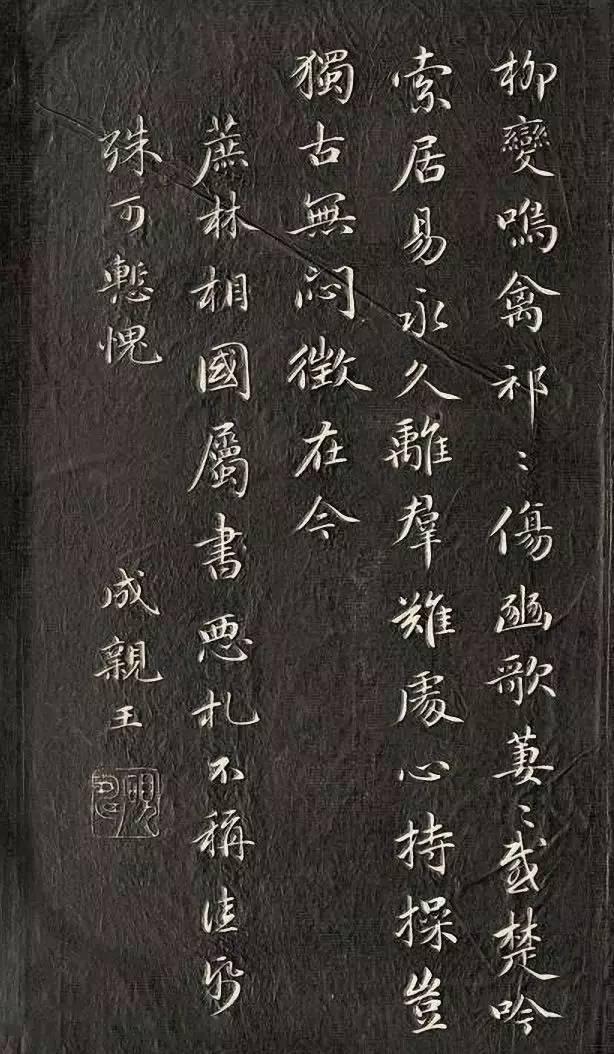 柳變鳴禽祁〻傷豳歌萋〻感楚吟
索居易永久離群難處心持操豈
獨古無悶徵在今
蔗林相國屬書惡札不稱佳紙
殊可慙愧
成親王